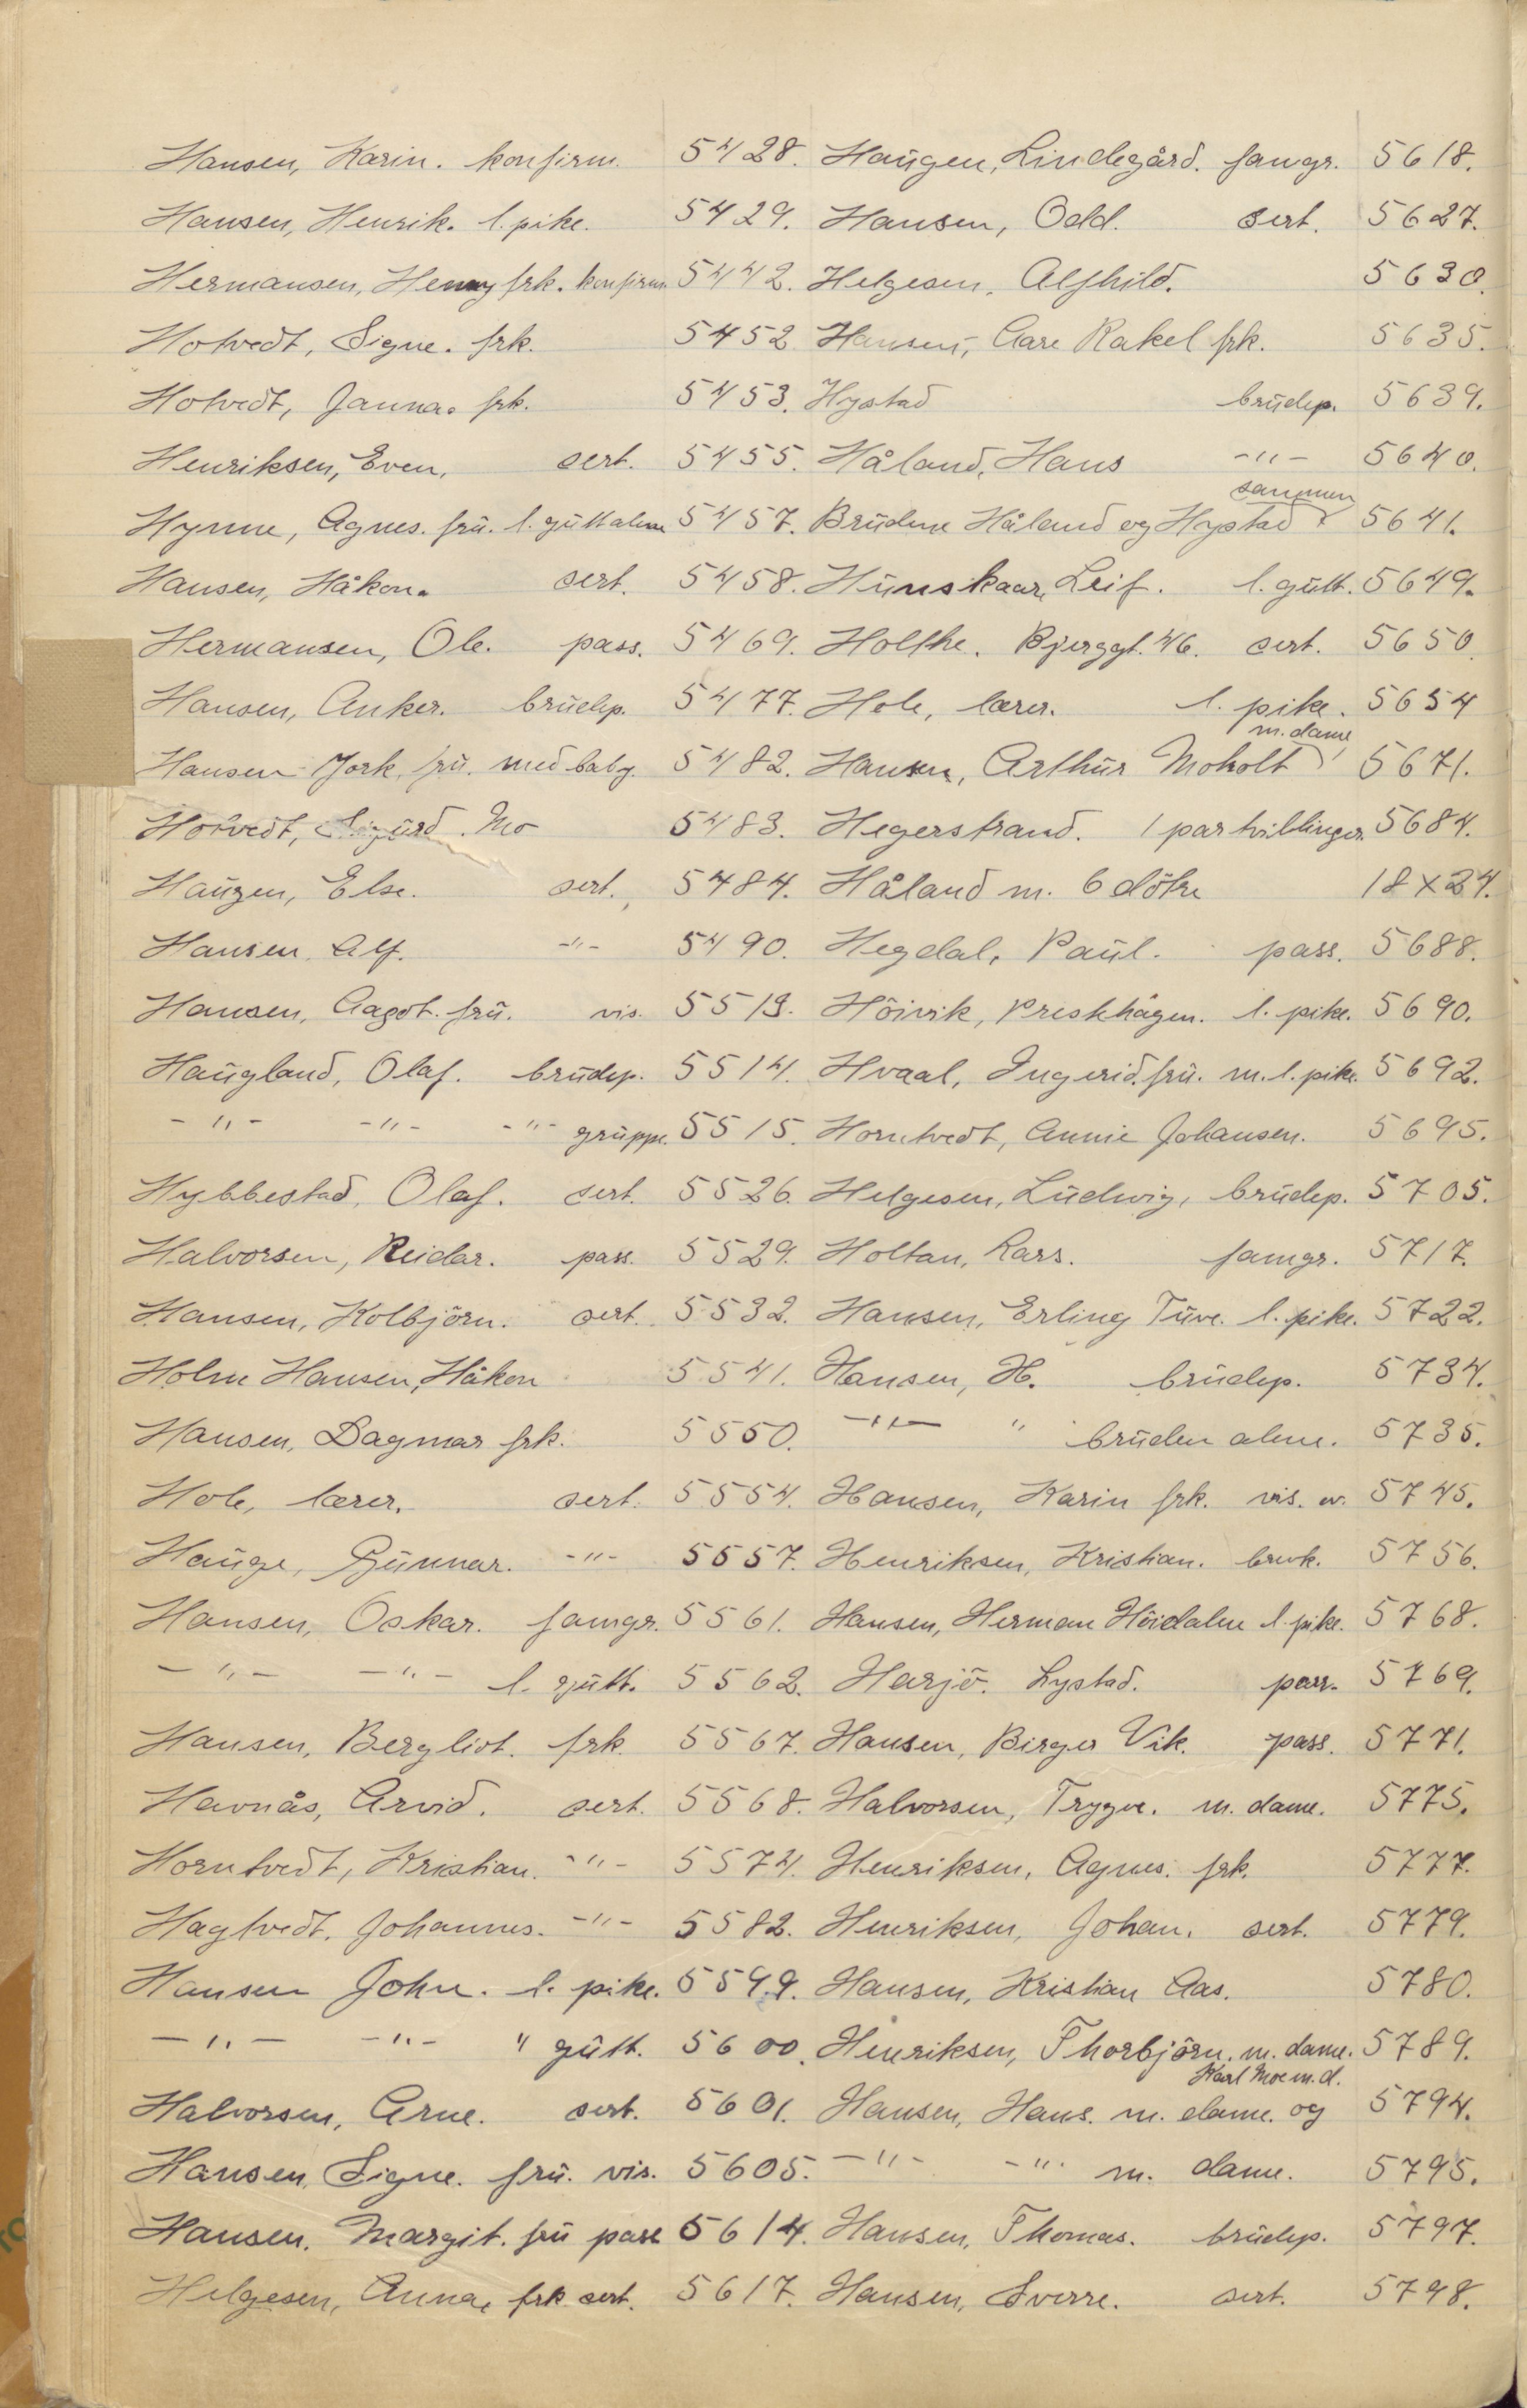 Hansen, Karin. konfirm. 5428.
Hansen, Henrik. l. pike. 5429.
Hermansen, Henny frk. konfirm. 5442.
Hotvedt, Signe. frk. 5452
Hotvedt, Janna. frk. 5453.
Henriksen, Even. sert. 5455.
Hynne, Agnes. frü. l. gütt alene 5457.
Hansen, Håkon. sert. 5458.
Hermansen, Ole. pass. 5469.
Hansen, Anker. brüdep. 5477.
Hansen York, frü. med baby. 5482.
Hotvedt, Sigürd. Mo 5483.
Haügen, Else. sert. 5484.
Hansen, Alf. -"- 5490.
Hansen, Aagot. frü. vis. 5513.
Haügland, Olaf. brüdep. 5514.
-"- -"- -"- grüppe. 5515.
Hybbestad, Olaf. sert. 5526.
Halvorsen, Reidar. pass. 5529.
Hansen, Kolbjörn. sert. 5532.
Holm Hansen, Håkon 5541.
Hansen, Dagmar frk. 5550.
Hole, lærer. sert. 5554.
Haüge, Günnar. -"- 5557.
Hansen, Oskar. famgr. 5561.
-"- -"- l. gütt. 5562.
Hansen, Bergliot. frk. 5567.
Havnås, Arvid. sert. 5568.
Horntvedt, Kristian. -"- 5574.
Hagtvedt, Johannes. -"- 5582.
Hansen John. l. pike. 5599.
-"- -"- " gütt. 5600.
Halvorsen, Arne. sert. 5601.
Hansen, Signe. frü. vis. 5605.
Hansen, Margit. frü pass 5614.
Helgesen, Anna, frk sert. 5617.
Haügen, Lindegård. famgr. 5618.
Hansen, Odd. sert. 5627.
Helgesen, Alfhild. 5630.
Hansen, Aare Rakel frk. 5635.
Hystad brüdep. 5639.
Håland, Hans -"- 5640.
sammen
Brüdene Håland og Hystad 5641.
Hünskaar, Leif. l. gütt. 5649.
Holthe. Bjerggt. 46. sert. 5650.
Hole, lærer. l. pike. 5654
m. dame
Hansen, Arthür Moholt 5671.
Hegerstrand. 1 par tvillinger. 5684.
Håland m. 6 dötre 18x24.
Hegdal, Paül. pass. 5688.
Höivik, Presthagen. l. pike. 5690.
Hvaal, Ingerid. frü. m. l. pike. 5692.
Horntvedt, Annie Johansen. 5695.
Helgesen, Lüdwig, brüdep. 5705.
Holtan, Lars. famgr. 5717.
Hansen, Erling Tüve. l. pike. 5722.
Hansen, H. brüdep. 5734.
-"- " brüden alene. 5735.
Hansen, Karin frk. vis. 5745.
Henriksen, Kristian. brevk. 5756.
Hansen, Herman Höidalen l. pike. 5768.
Harjö. Lystad. pass. 5769.
Hansen, Birger Vik. pass. 5771.
Halvorsen, Trygve. m. dame. 5775.
Henriksen, Agnes. frk. 5777.
Henriksen, Johan. sert. 5779.
Hansen, Kristian Aas. 5780.
Henriksen, Thorbjörn. m. dame. 5789.
Karl Moe m. d.
Hansen, Hans. m. dame. og 5794.
-"- -"- m. dame. 5795.
Hansen, Thomas. brüdep. 5797.
Hansen, Sverre. sert. 5798.